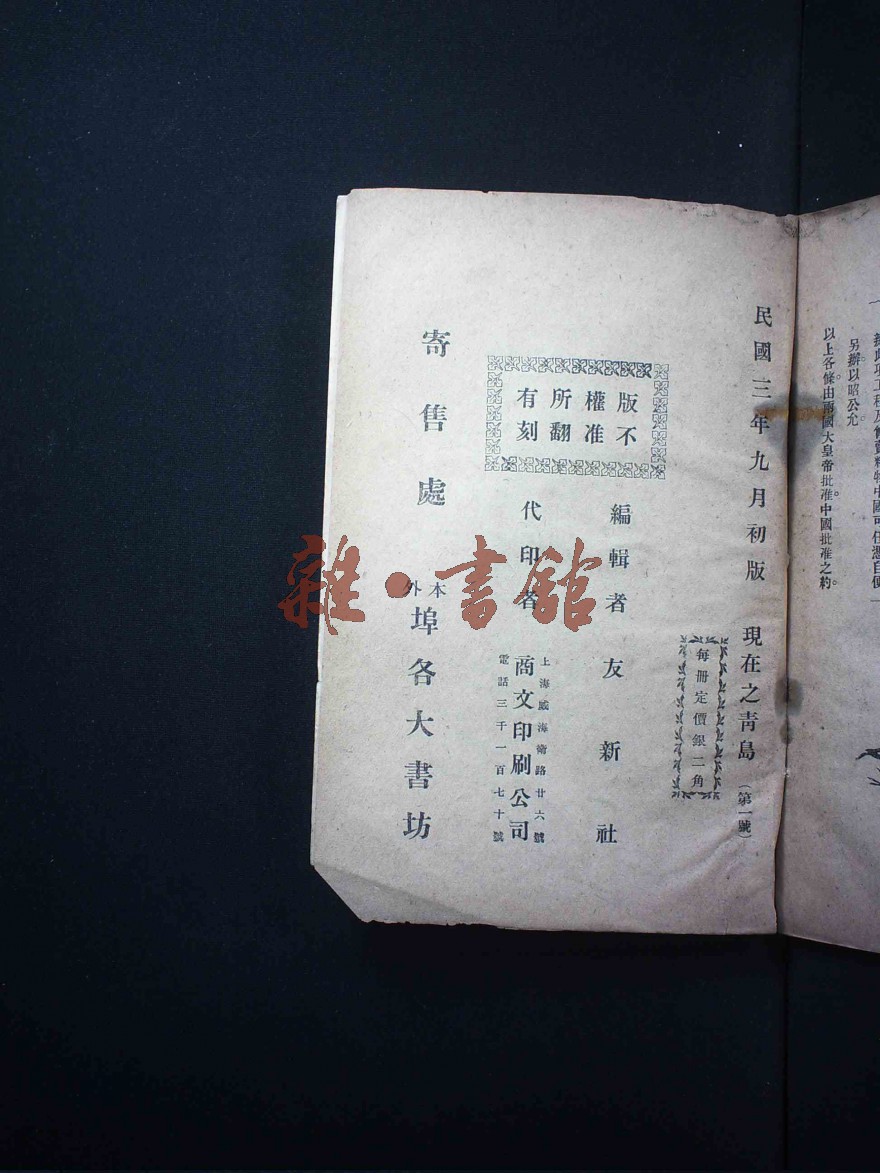 辦此項工程及
中國可任憑自便
另辦以昭公允。
以上各條由兩國大皇帝批准。中國批准之約。
民國三年九月初版 現在之青島 (第一號)
每冊定價銀二角
版權所有
不准翻刻
編輯者 友新社
代印者 商文印刷公司
上海威海衛路廿六號
電話三千一百七十號
寄售處 本外埠各大書坊
雜·書館